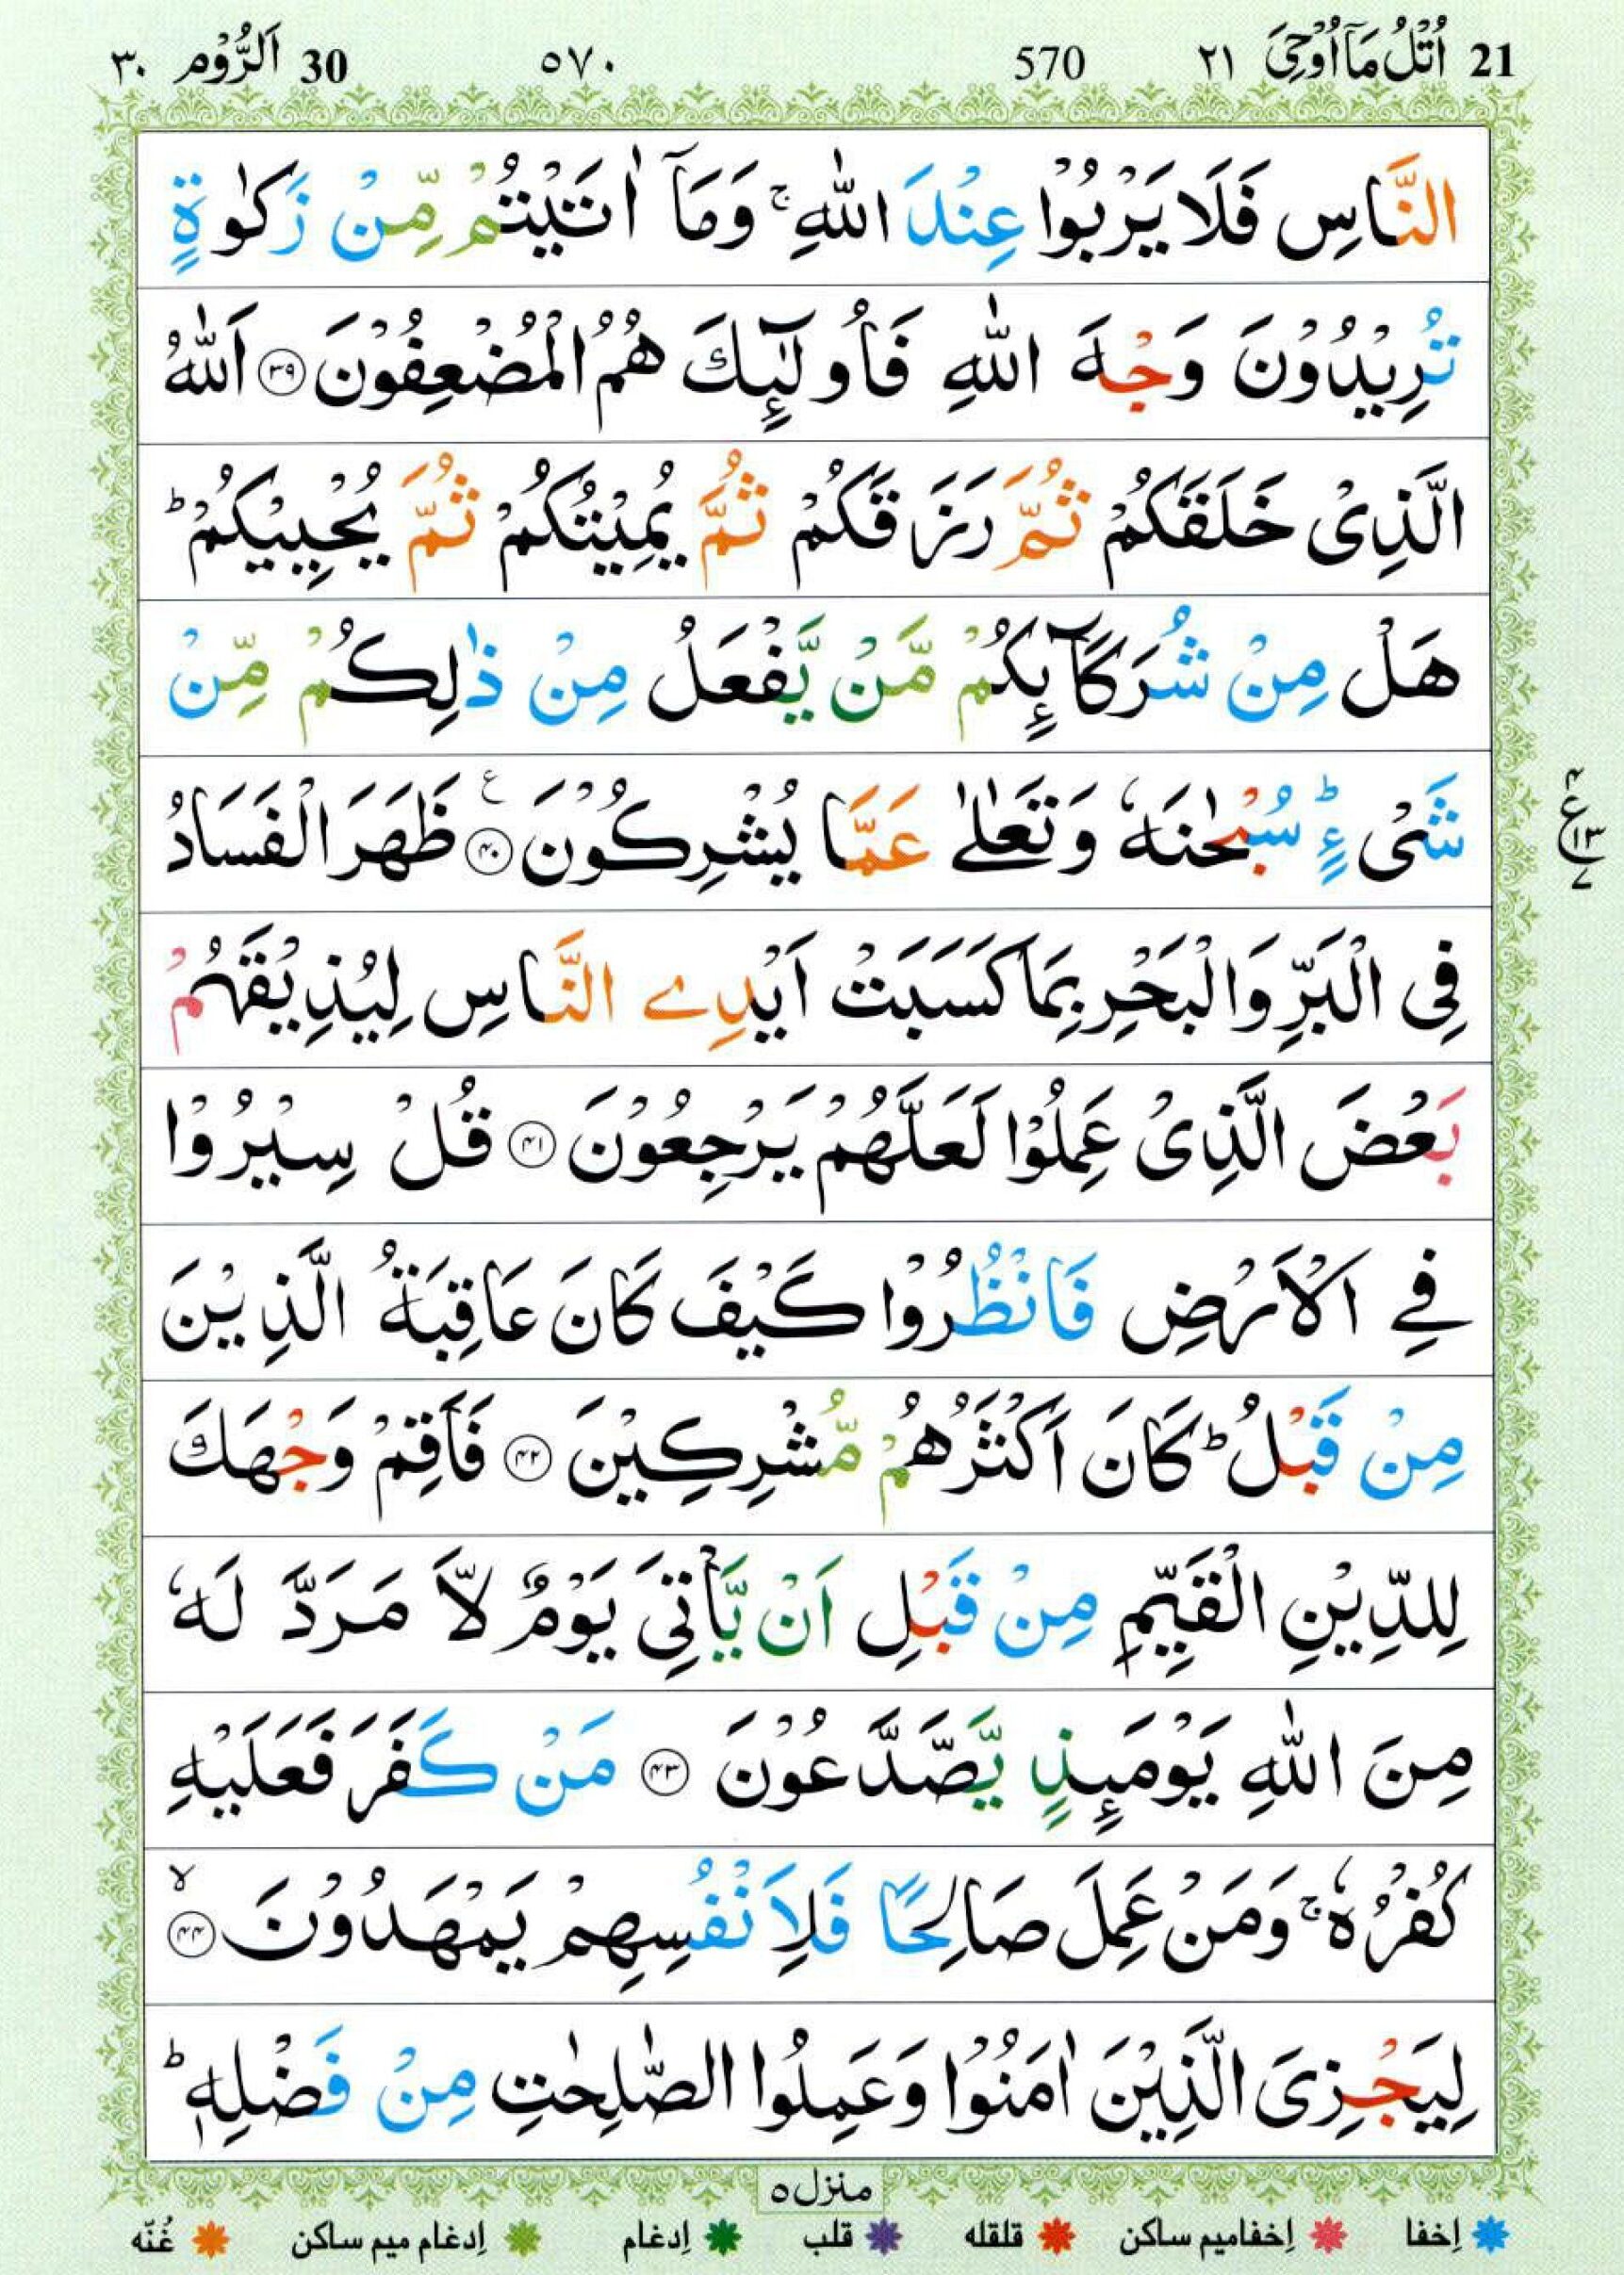 21 اُتْلُ مَآ اُوْحِیَ ٢١ 570 ٥٧٠ 30 اَلرُّوْم ٣٠
النَّاسِ فَلَا یَرْبُوْا عِنْدَ اللّٰهِ ۚ وَمَاۤ اٰتَیْتُمْ مِّنْ زَكٰوةٍ
تُرِیْدُوْنَ وَجْهَ اللّٰهِ فَاُولٰٓئِكَ هُمُ الْمُضْعِفُوْنَ ﴿٣٩﴾ اَللّٰهُ
الَّذِیْ خَلَقَكُمْ ثُمَّ رَزَقَكُمْ ثُمَّ یُمِیْتُكُمْ ثُمَّ یُحْیِیْكُمْ ؕ
هَلْ مِنْ شُرَكَآئِكُمْ مَّنْ یَّفْعَلُ مِنْ ذٰلِكُمْ مِّنْ
شَیْءٍ ؕ سُبْحٰنَهٗ وَتَعٰلٰی عَمَّا یُشْرِكُوْنَ ﴿٤٠﴾ ع ظَهَرَ الْفَسَادُ
ع ٤ ١٣ ٧
فِی الْبَرِّ وَالْبَحْرِ بِمَا كَسَبَتْ اَیْدِی النَّاسِ لِیُذِیْقَهُمْ
بَعْضَ الَّذِیْ عَمِلُوْا لَعَلَّهُمْ یَرْجِعُوْنَ ﴿٤١﴾ قُلْ سِیْرُوْا
فِی الْاَرْضِ فَانْظُرُوْا كَیْفَ كَانَ عَاقِبَةُ الَّذِیْنَ
مِنْ قَبْلُ ؕ كَانَ اَكْثَرُهُمْ مُّشْرِكِیْنَ ﴿٤٢﴾ فَاَقِمْ وَجْهَكَ
لِلدِّیْنِ الْقَیِّمِ مِنْ قَبْلِ اَنْ یَّاْتِیَ یَوْمٌ لَّا مَرَدَّ لَهٗ
مِنَ اللّٰهِ یَوْمَئِذٍ یَّصَّدَّعُوْنَ ﴿٤٣﴾ مَنْ كَفَرَ فَعَلَیْهِ
كُفْرُهٗ ۚ وَمَنْ عَمِلَ صَالِحًا فَلِاَنْفُسِهِمْ یَمْهَدُوْنَ ﴿٤٤﴾ ۙ
لِیَجْزِیَ الَّذِیْنَ اٰمَنُوْا وَعَمِلُوا الصّٰلِحٰتِ مِنْ فَضْلِهٖ ؕ
منزل ٥
اِخفا اِخفامیم ساکن قلقله قلب اِدغام اِدغام میم ساکن غُنّه